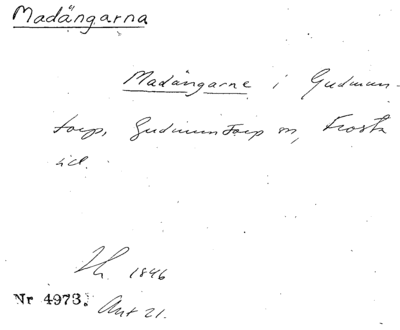 Madängarna
Madängarne i Gudmun-
torp, Gudmuntorp sn, Frosta
hd.
1846
Nr 4973. Ant 21.